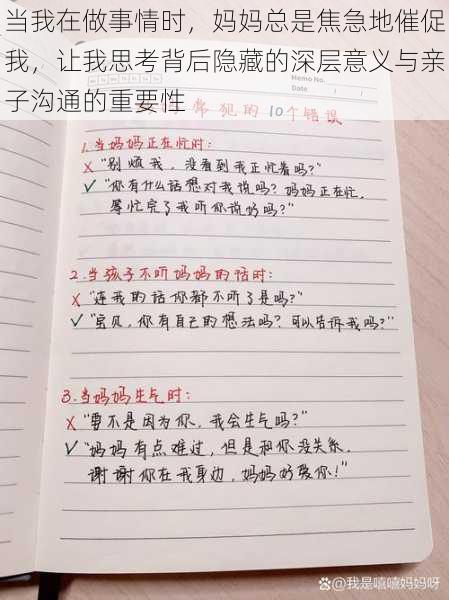 当我在做事情时，妈妈总是焦急地催促
我，让我思考背后隐藏的深层意义与亲
子沟通的重要性
Memo No.
Date / /
常犯的10个错误
1.当妈妈正在忙时：
× "别烦我，没看到我正忙着吗？"
✓ "你有什么话想对我说吗？妈妈正在忙，
等忙完了我听你说好吗？"
2.当孩子不听妈妈的话时：
× "连我的话你都不听了是吗？"
✓ "宝贝，你有自己的想法吗？可以告诉我吗？"
3.当妈妈生气时：
× "要不是因为你，我会生气吗？"
✓ "妈妈有点难过，但是和你没关系，
谢谢你在我身边，妈妈好爱你！"
@我是嘻嘻妈妈呀